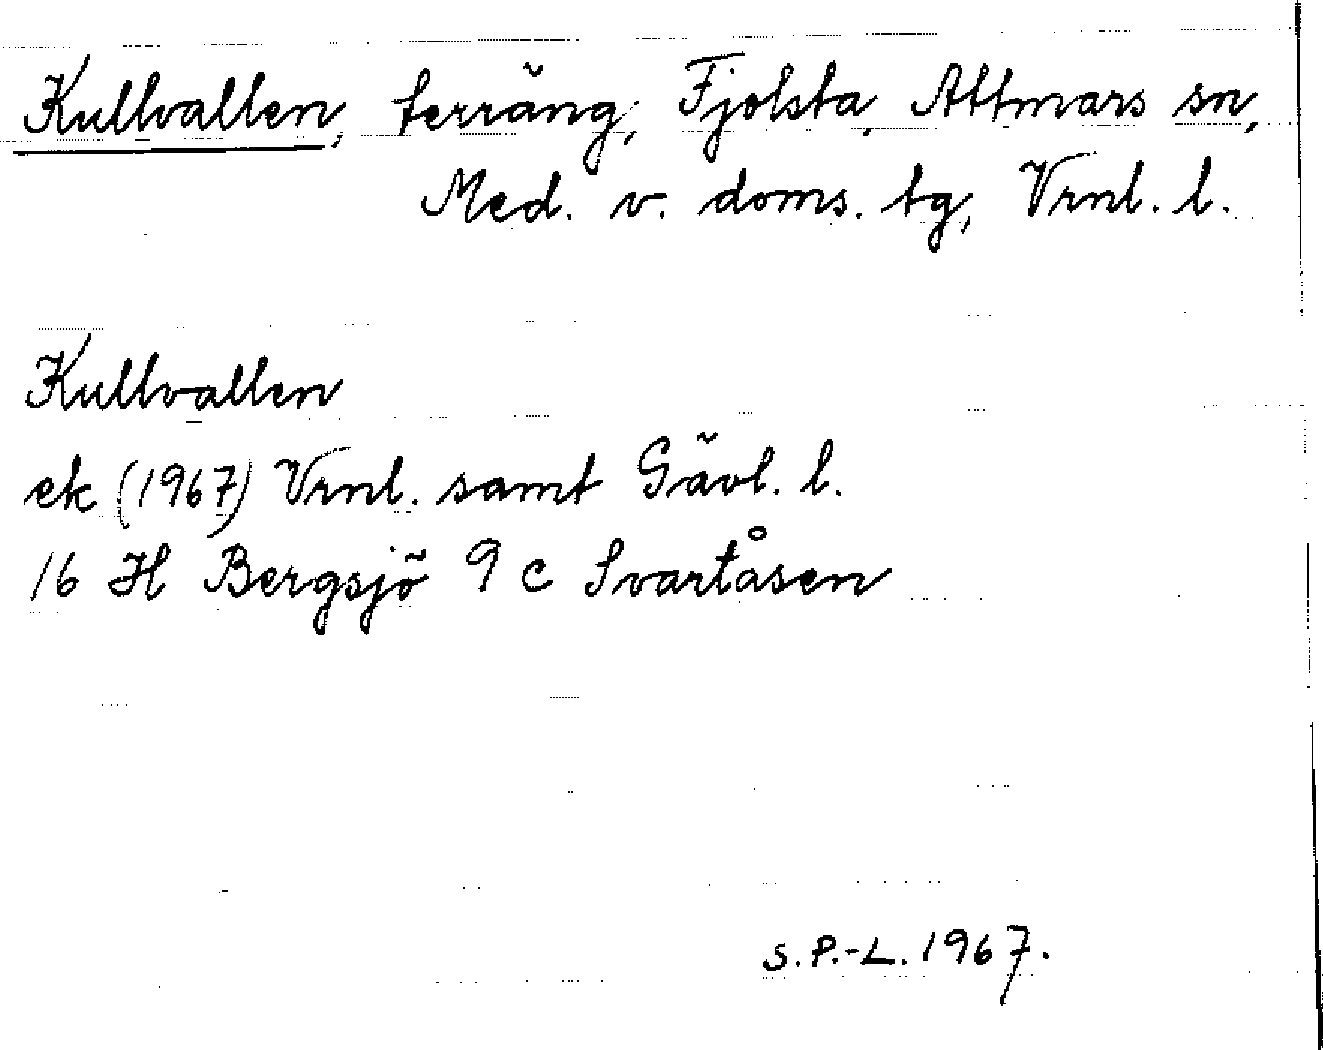 Kullvallen, terräng, Fjolsta, Attmars sn,
Med. v. doms. tg, Vrnl. l.
Kullvallen
ek (1967) Vrnl. samt Gävl. l.
16 H Bergsjö 9 c Svartåsen
S.P.-L. 1967.